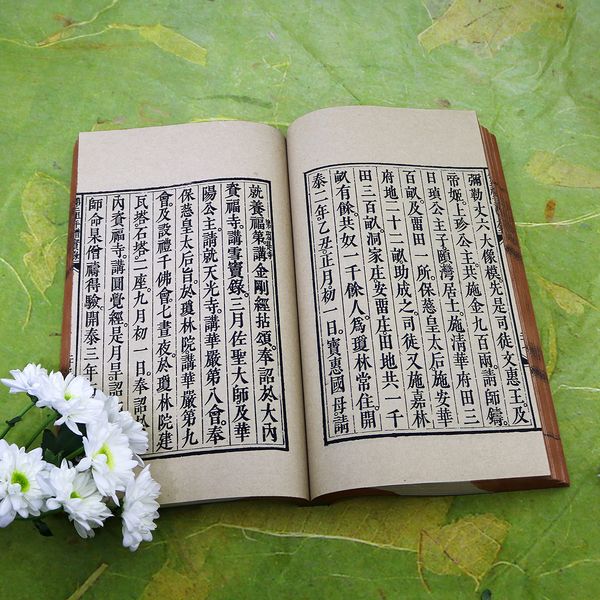 彌勒丈六大像模。先是司徒文惠王。及
帝姬上珍公主共施金九百兩。請師鑄。
日瑱公主子頤灣居士。施清華府田三
百畝。及雷田一所。保慈皇太后施安華
府地二十二畝助成之。司徒又施嘉林
田三百畝。洞家庄安雷庄田地共一千
畝有餘。共奴一千餘人。爲瓊林常住。開
泰二年乙丑。正月初一日。寶惠國母請
就養福第講金剛經拈頌。奉詔於大內
資福寺。講雪竇錄。三月佐聖大師及華
陽公主。請就天光寺。講華嚴第八會。奉
保慈皇太后旨。於瓊林院講華嚴第九
會。及設禮千佛會七晝夜。於瓊林院建
瓦塔。石塔。二座九月初一日。奉詔於
內資福寺。講圓覺經。是月。
師命 僧禱得驗。開泰三年